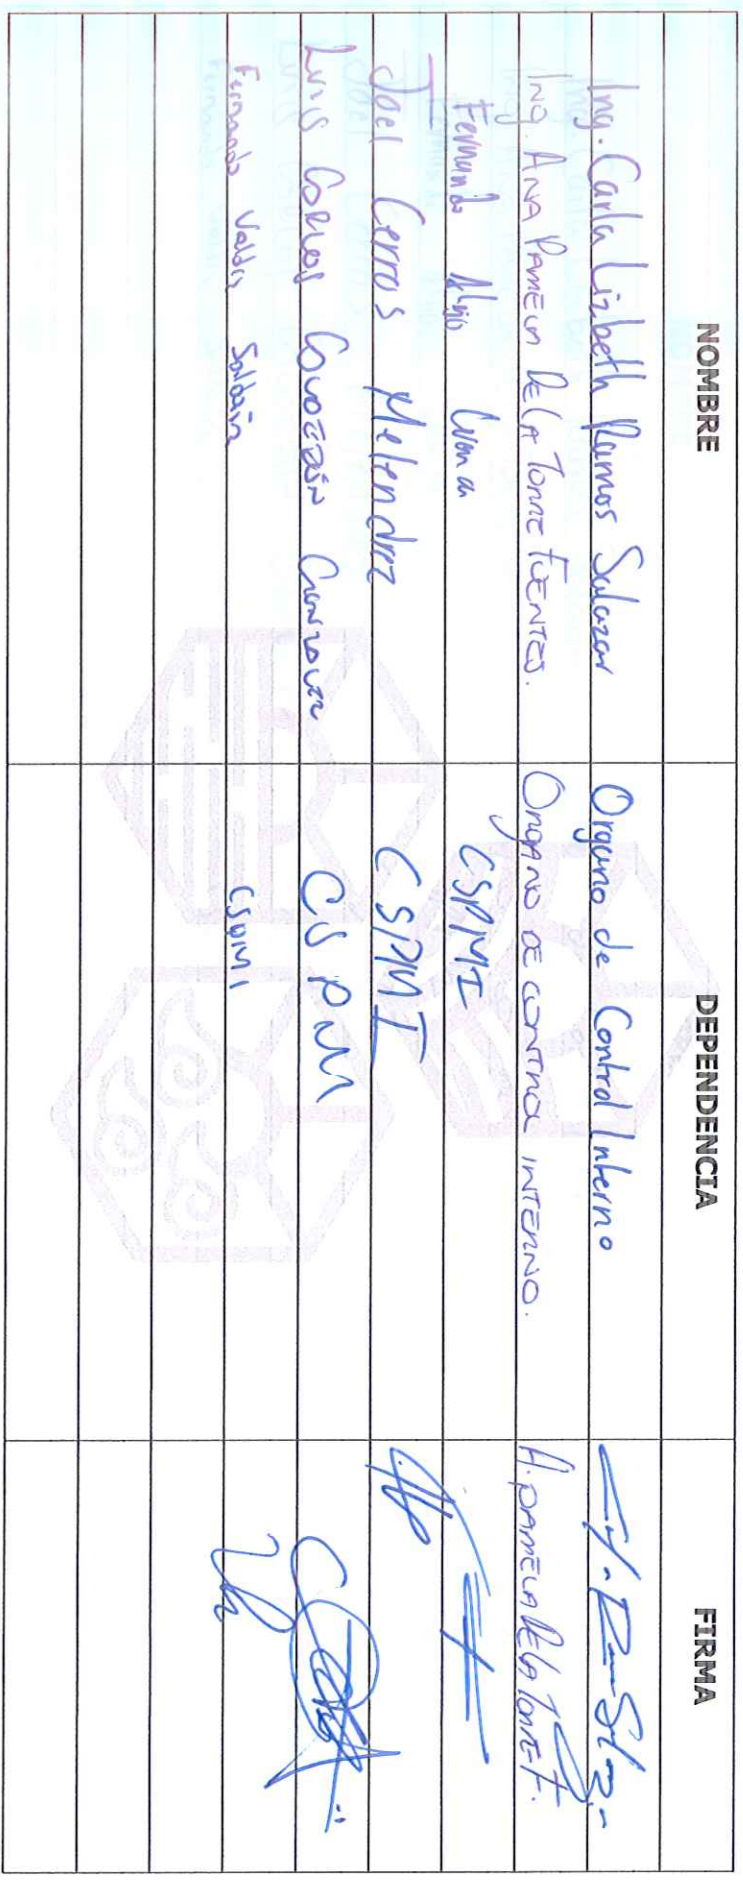 NOMBRE DEPENDENCIA FIRMA
Ing. Carla Lizbeth Ramos Salazar Organo de Control Interno
ING. ANA PAMELA DE LA TORRE FUENTES. ORGANO DE CONTROL INTERNO. A. PAMELA DE LA TORRE F.
Fernando CSPMI
Joel Cerros Melendez CSPMI
Luis Carlos CS PM
Fernando Valdez Saldaña CSPMI